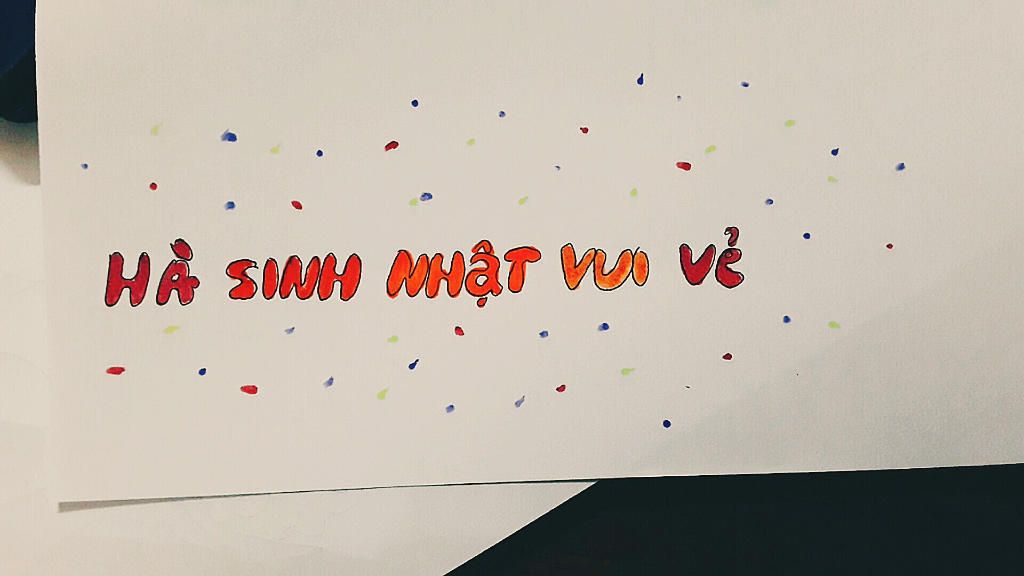 HÀ SINH NHẬT VUI VẺ